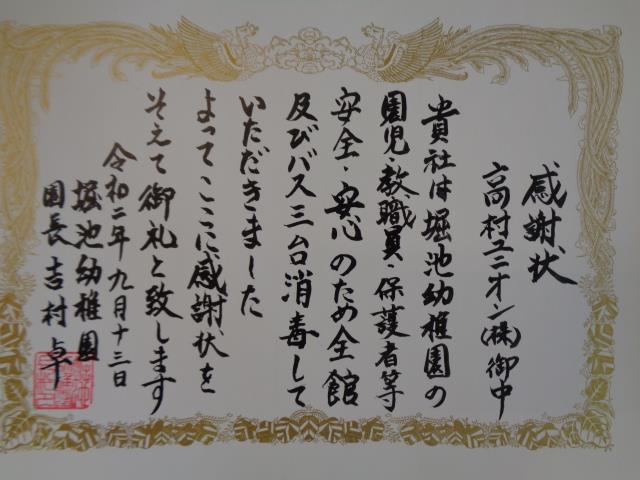 感謝状
高村ユニオン(株)御中
貴社は堀池幼稚園の
園児・教職員・保護者等
安全・安心のため全館
及びバス三台消毒して
いただきました
よってここに感謝状を
そえて御礼と致します
令和二年九月十三日
堀池幼稚園
園長吉村卓